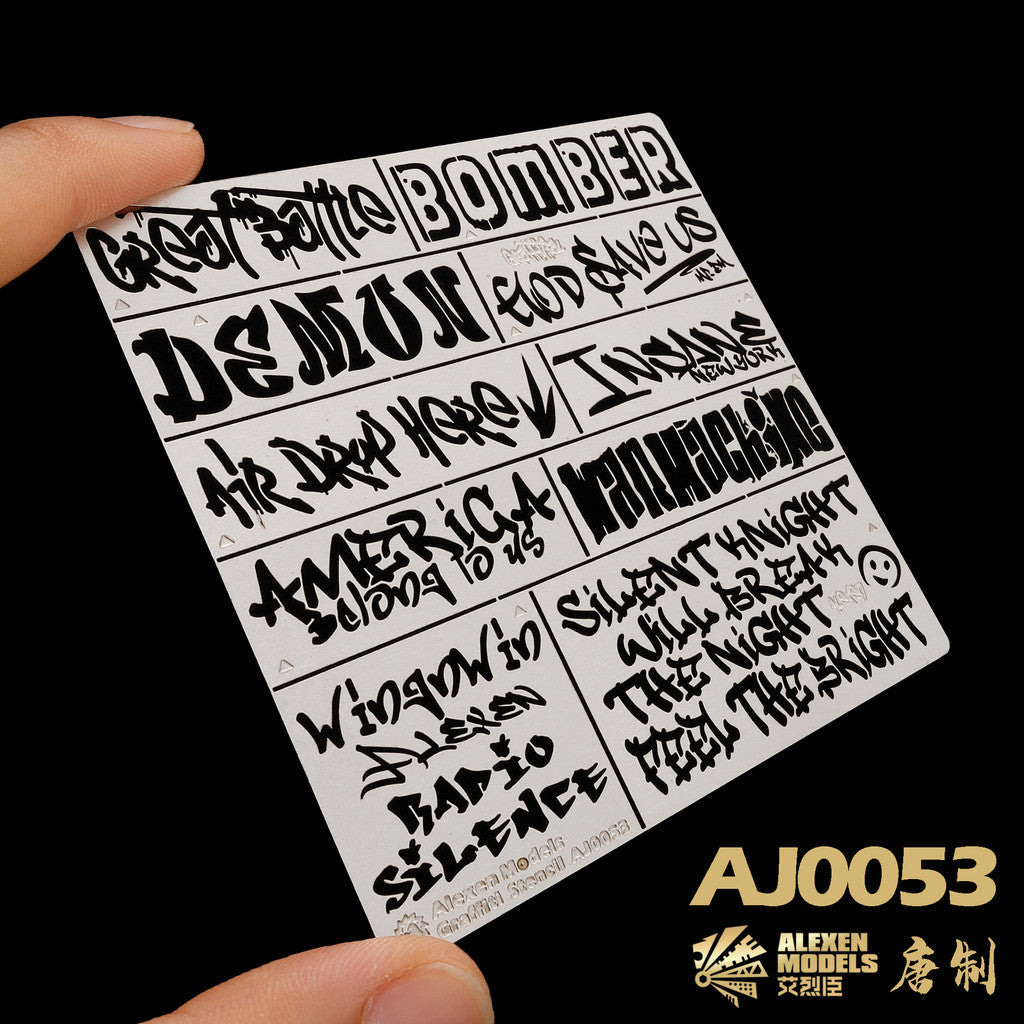 Great Battle
BOMBER
DEMON
GOD SAVE US
AIR DROP HERE
INSANE
NEW YORK
AMERICA
Belong to us
WAR MACHINE
SILENT KNIGHT
WILL BREAK
THE NIGHT
FEEL THE BRIGHT
WingnWin
ALEXEN
RADIO
SILENCE
Alexen Models
Graffiti Stencil AJ0053
AJ0053
ALEXEN
MODELS
艾烈臣
唐制